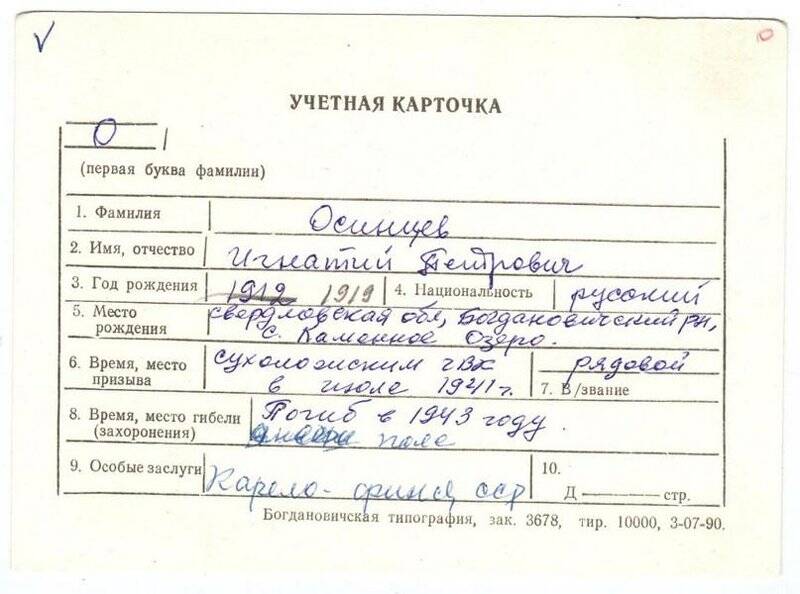 УЧЕТНАЯ КАРТОЧКА
О
(первая буква фамилии)
1. Фамилия Осинцев
2. Имя, отчество Игнатий Петрович
3. Год рождения 1912 1919 4. Национальность русский
5. Место рождения свердловская обл, Богдановический рн,
с. Каменное Озеро.
6. Время, место призыва сухоложским гвк
в июле 1941 г.
рядовой
7. В/звание
8. Время, место гибели (захоронения) Погиб в 1943 году.
поле
9. Особые заслуги Карело-финск сср
10.
Д ——— стр.
Богдановичская типография, зак. 3678, тир. 10000, 3-07-90.